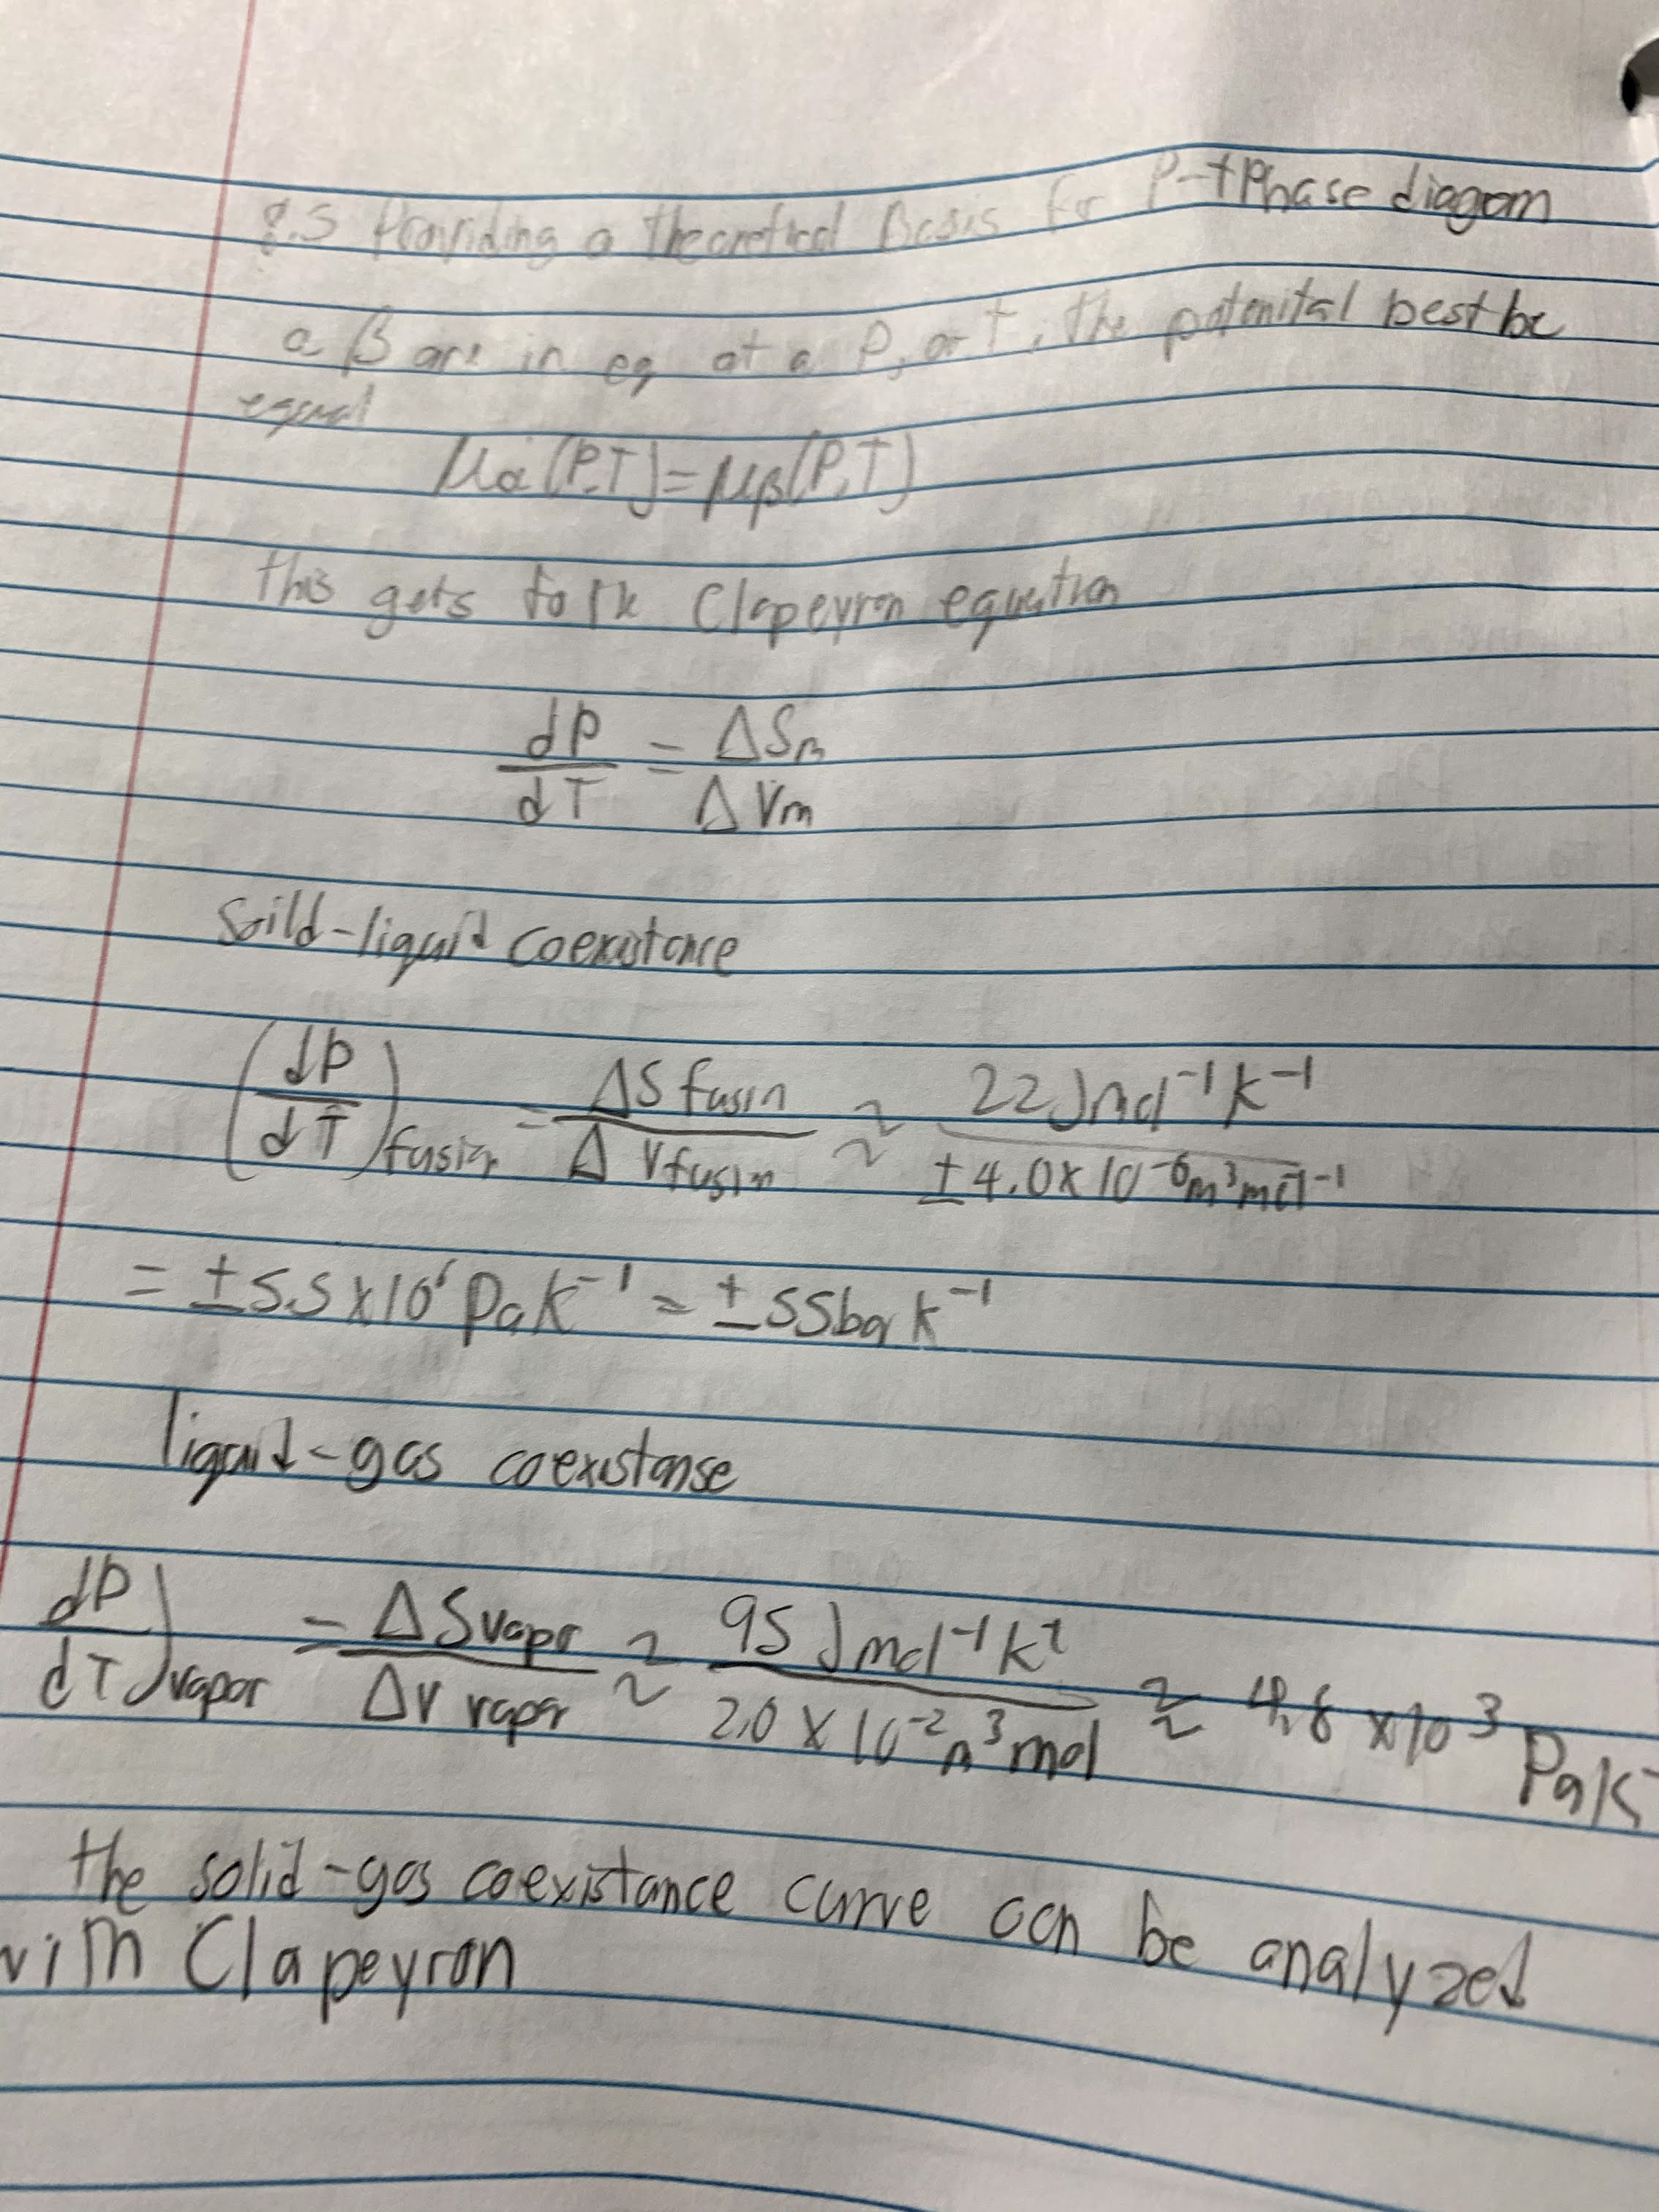 8.5 Providing a theoretical Basis for P-T Phase diagram
α β are in eq at a P, or T, the potenital best be
equal
μα(P,T)=μβ(P,T)
this gets to the Clapeyron equation
dP/dT = ΔSm/ΔVm
Soild-liquid coexistance
(dP/dT)fusion = ΔS fusin/Δ V fusin ≈ 22 J mol⁻¹ K⁻¹/±4.0 x 10⁻⁶ m³ mol⁻¹
= ±5.5 x 10⁶ Pa K⁻¹ = ±55 bar K⁻¹
liquid-gas coexistanse
dP/dT)vapor = ΔS vapor/ΔV vapor ≈ 95 J mol⁻¹ K⁻¹/2.0 x 10⁻² m³ mol ≈ 4.8 x 10³ Pa K⁻
the solid-gas coexistance curve can be analyzed
with Clapeyron